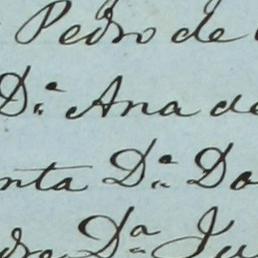 Pedro de
D.ª Ana de
nta D.ª Do
dro D.ª Ju